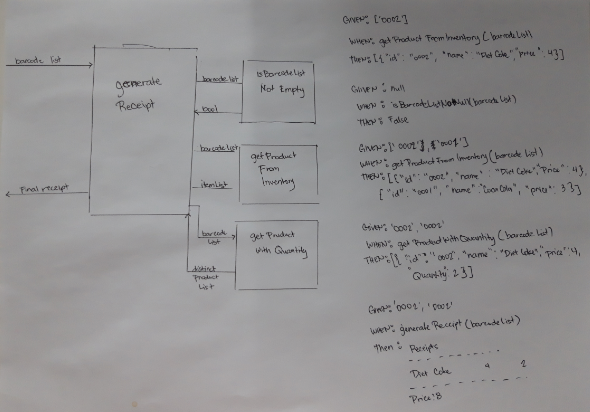 barcode list
generate
Receipt
Final receipt
barcode list
bool
isBarcodeList
Not Empty
barcode list
itemList
getProduct
From
Inventory
barcode
List
distinct
Product
List
get Product
with Quantity
GIVEN: ['0002']
WHEN: getProduct From Inventory (barcode List)
THEN: [{"id": "0002", "name": "Diet Coke", "price": 4}]
GIVEN: Null
WHEN: isBarcodeListNotNull (barcode list)
THEN: False
GIVEN: ['0002'], ['0001']
WHEN: getProduct From Inventory (barcode list)
THEN: [{"id": "0002", "name": "Diet Coke", "Price": 4},
{"id": "0001", "name": "Coca Cola", "price": 3}]
GIVEN: '0002', '0002'
WHEN: get Product With Quantity (barcode List)
THEN: [{"id": "0002", "name": "Diet Coke", "price": 4,
"Quantity": 2}]
GIVEN: '0002', '0002'
WHEN: generate Receipt (barcode List)
Then: Receipts
Diet Coke 4 2
Price: 8